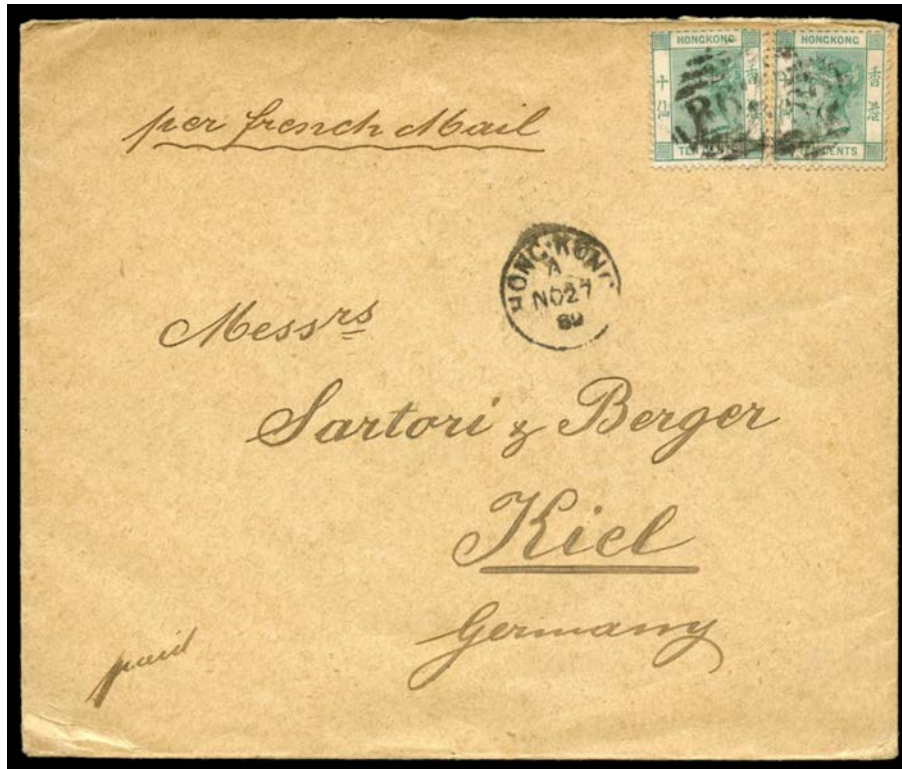 HONGKONG HONGKONG
十仙 香港
TEN CENTS
per french Mail
HONG KONG
A
NO 27
89
Messrs
Sartori & Berger
Kiel
Germany
paid